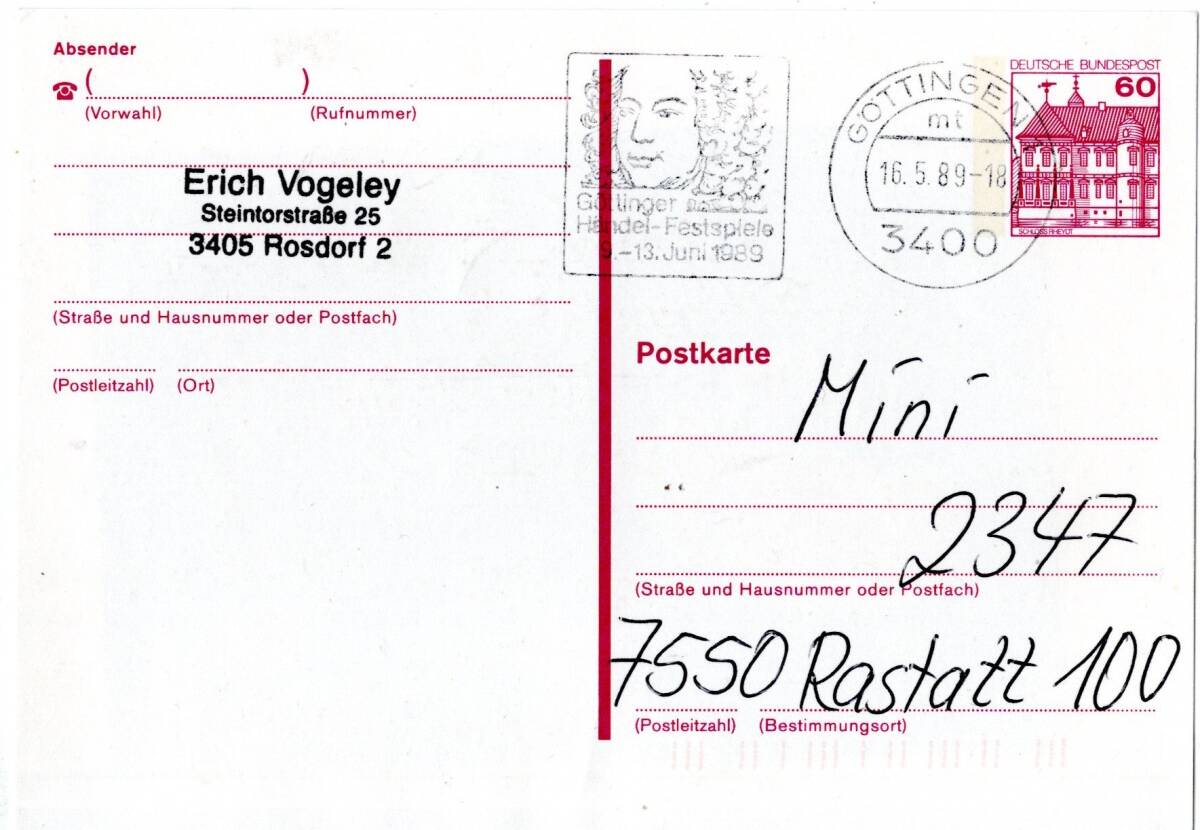 Absender
( )
(Vorwahl) (Rufnummer)
Erich Vogeley
Steintorstraße 25
3405 Rosdorf 2
(Straße und Hausnummer oder Postfach)
(Postleitzahl) (Ort)
Göttinger
Händel-Festspiele
9.-13. Juni 1989
GÖTTINGEN
mt
16.5.89-18
3400
DEUTSCHE BUNDESPOST
60
SCHLOSS RHEYDT
Postkarte
Mini
2347
(Straße und Hausnummer oder Postfach)
7550 Rastatt 100
(Postleitzahl) (Bestimmungsort)